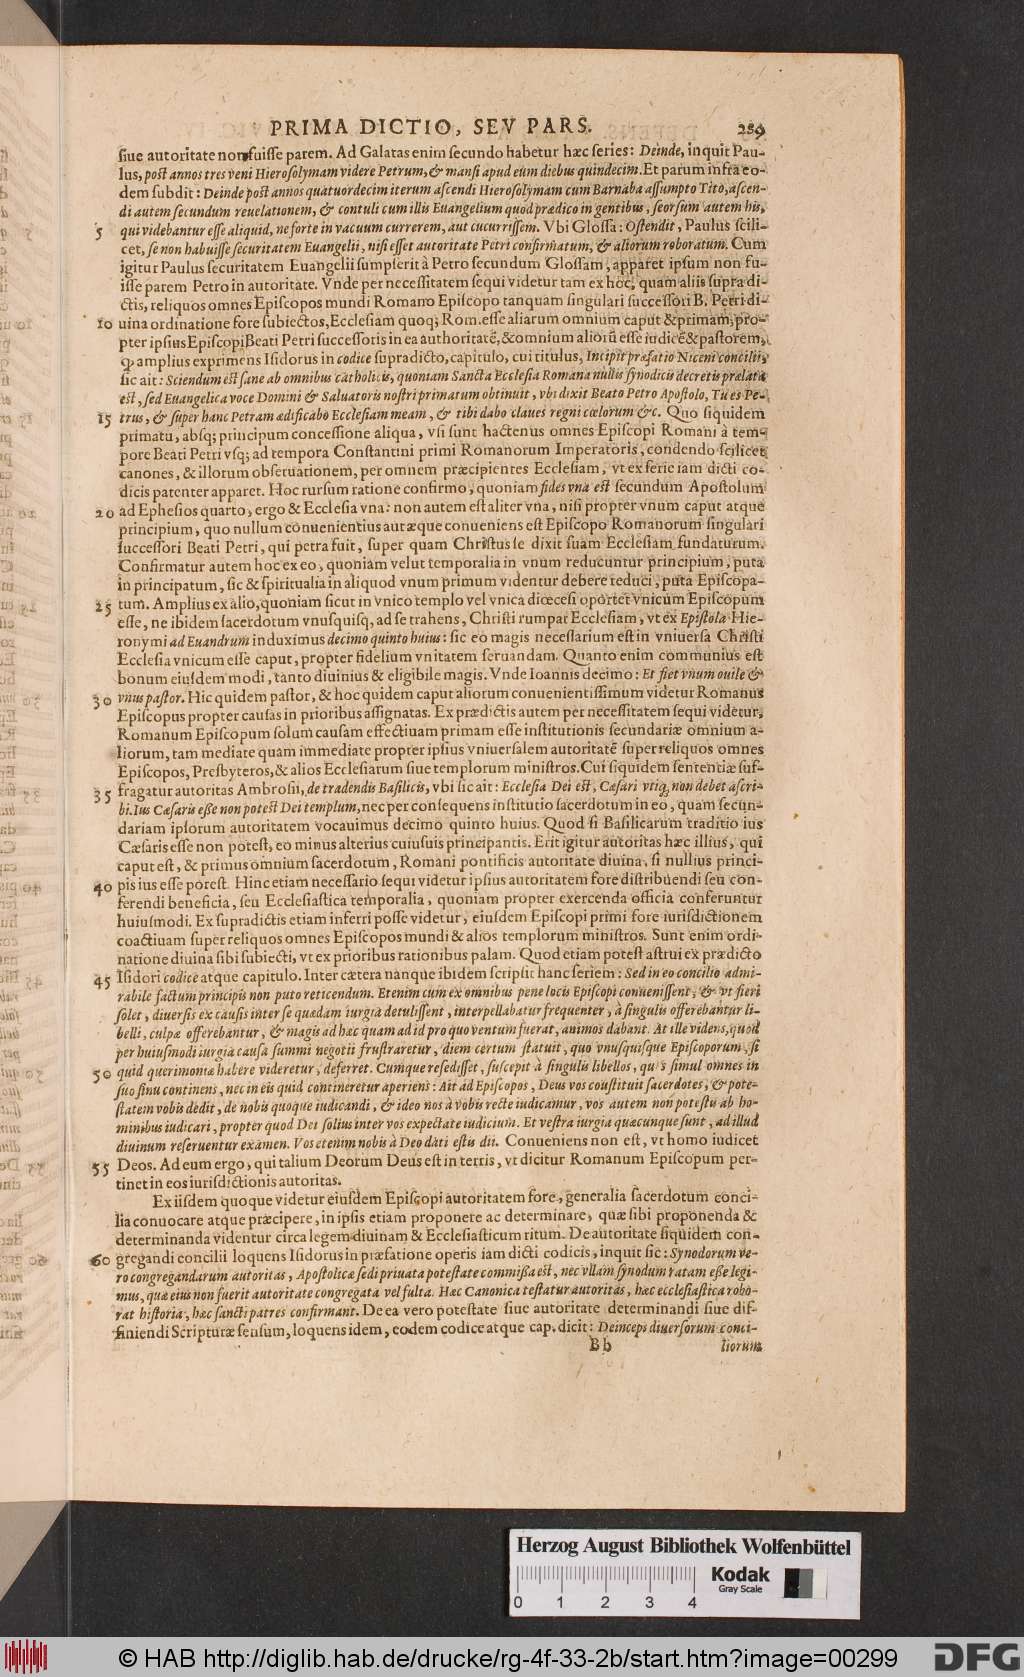 PRIMA DICTIO, SEV PARS. 289
siue autoritate non fuisse parem. Ad Galatas enim secundo habetur hæc series: Deinde, inquit Pau-
lus, post annos tres veni Hierosolymam videre Petrum, & mansi apud eum diebus quindecim. Et parum infra eo-
dem subdit: Deinde post annos quatuordecim iterum ascendi Hierosolymam cum Barnaba assumpto Tito, ascen-
di autem secundum reuelationem, & contuli cum illis Euangelium quod prædico in gentibus, seorsum autem his,
5 qui videbantur esse aliquid, ne forte in vacuum currerem, aut cucurrissem. Vbi Glossa: Ostendit, Paulus scili-
cet, se non habuisse securitatem Euangelii, nisi esset autoritate Petri confirmatum, & aliorum roboratum. Cum
igitur Paulus securitatem Euangelii sumpserit à Petro secundum Glossam, apparet ipsum non fu-
isse parem Petro in autoritate. Vnde per necessitatem sequi videtur tam ex hoc, quam aliis supra di-
ctis, reliquos omnes Episcopos mundi Romano Episcopo tanquam singulari successori B. Petri di-
10 uina ordinatione fore subiectos, Ecclesiam quoq; Rom. esse aliarum omnium caput & primam, pro-
pter ipsius Episcopi Beati Petri successoris in ea authoritatē, & omnium aliorū esse iudicē & pastorem,
ꝙ amplius exprimens Isidorus in codice supradicto, capitulo, cui titulus, Incipit præfatio Niceni concilii,
sic ait: Sciendum est sane ab omnibus catholicis, quoniam Sancta Ecclesia Romana nullis synodicis decretis prælata
est, sed Euangelica voce Domini & Saluatoris nostri primatum obtinuit, vbi dixit Beato Petro Apostolo, Tu es Pe-
15 trus, & super hanc Petram ædificabo Ecclesiam meam, & tibi dabo claues regni cœlorum &c. Quo siquidem
primatu, absq; principum concessione aliqua, vsi sunt hactenus omnes Episcopi Romani à tem-
pore Beati Petri vsq; ad tempora Constantini primi Romanorum Imperatoris, condendo scilicet
canones, & illorum obseruationem, per omnem præcipientes Ecclesiam, vt ex serie iam dicti co-
dicis patenter apparet. Hoc rursum ratione confirmo, quoniam fides vna est secundum Apostolum
20 ad Ephesios quarto, ergo & Ecclesia vna: non autem est aliter vna, nisi propter vnum caput atque
principium, quo nullum conuenientius aut æque conueniens est Episcopo Romanorum singulari
successori Beati Petri, qui petra fuit, super quam Christus se dixit suam Ecclesiam fundaturum.
Confirmatur autem hoc ex eo, quoniam velut temporalia in vnum reducuntur principium, puta
in principatum, sic & spiritualia in aliquod vnum primum videntur debere reduci, puta Episcopa-
25 tum. Amplius ex alio, quoniam sicut in vnico templo vel vnica diœcesi oportet vnicum Episcopum
esse, ne ibidem sacerdotum vnusquisq, ad se trahens, Christi rumpat Ecclesiam, vt ex Epistola Hie-
ronymi ad Euandrum induximus decimo quinto huius: sic eo magis necessarium est in vniuersa Christi
Ecclesia vnicum esse caput, propter fidelium vnitatem seruandam. Quanto enim communius est
bonum eiusdem modi, tanto diuinius & eligibile magis. Vnde Ioannis decimo: Et fiet vnum ouile &
30 vnus pastor. Hic quidem pastor, & hoc quidem caput aliorum conuenientissimum videtur Romanus
Episcopus propter causas in prioribus assignatas. Ex prædictis autem per necessitatem sequi videtur,
Romanum Episcopum solum causam effectiuam primam esse institutionis secundariæ omnium a-
liorum, tam mediate quam immediate propter ipsius vniuersalem autoritatē super reliquos omnes
Episcopos, Presbyteros, & alios Ecclesiarum siue templorum ministros. Cui siquidem sententiæ suf-
35 fragatur autoritas Ambrosii, de tradendis Basilicis, vbi sic ait: Ecclesia Dei est, Cæsari vtiq; non debet ascri-
bi. Ius Cæsaris esse non potest Dei templum, nec per consequens institutio sacerdotum in eo, quam secun-
dariam ipsorum autoritatem vocauimus decimo quinto huius. Quod si Basilicarum traditio ius
Cæsaris esse non potest, eo minus alterius cuiusuis principantis. Erit igitur autoritas hæc illius, qui
caput est, & primus omnium sacerdotum, Romani pontificis autoritate diuina, si nullius princi-
40 pis ius esse potest. Hinc etiam necessario sequi videtur ipsius autoritatem fore distribuendi seu con-
ferendi beneficia, seu Ecclesiastica temporalia, quoniam propter exercenda officia conferuntur
huiusmodi. Ex supradictis etiam inferri posse videtur, eiusdem Episcopi primi fore iurisdictionem
coactiuam super reliquos omnes Episcopos mundi & alios templorum ministros. Sunt enim ordi-
natione diuina sibi subiecti, vt ex prioribus rationibus palam. Quod etiam potest astrui ex prædicto
45 Isidori codice atque capitulo. Inter cætera nanque ibidem scripsit hanc seriem: Sed in eo concilio admi-
rabile factum principis non puto reticendum. Etenim cum ex omnibus pene locis Episcopi conuenissent, & vt fieri
solet, diuersis ex causis inter se quædam iurgia detulissent, interpellabatur frequenter, à singulis offerebantur li-
belli, culpæ offerebantur, & magis ad hæc quam ad id pro quo ventum fuerat, animos dabant. At ille videns, quod
per huiusmodi iurgia causa summi negotii frustraretur, diem certum statuit, quo vnusquisque Episcoporum, si
50 quid querimoniæ habere videretur, deferret. Cumque resedisset, suscepit à singulis libellos, quos simul omnes in
suo sinu continens, nec in eis quid contineretur aperiens: Ait ad Episcopos, Deus vos constituit sacerdotes, & pote-
statem vobis dedit, de nobis quoque iudicandi, & ideo nos à vobis recte iudicamur, vos autem non potestis ab ho-
minibus iudicari, propter quod Dei solius inter vos expectate iudicium. Et vestra iurgia quæcunque sunt, ad illud
diuinum reseruentur examen. Vos etenim nobis à Deo dati estis dii. Conueniens non est, vt homo iudicet
55 Deos. Ad eum ergo, qui talium Deorum Deus est in terris, vt dicitur Romanum Episcopum per-
tinet in eos iurisdictionis autoritas.
Ex iisdem quoque videtur eiusdem Episcopi autoritatem fore, generalia sacerdotum conci-
lia conuocare atque præcipere, in ipsis etiam proponere ac determinare, quæ sibi proponenda &
determinanda videntur circa legem diuinam & Ecclesiasticum ritum. De autoritate siquidem con-
60 gregandi concilii loquens Isidorus in præfatione operis iam dicti codicis, inquit sic: Synodorum ve-
ro congregandarum autoritas, Apostolicæ sedi priuata potestate commissa est, nec vllam synodum ratam esse legi-
mus, quæ eius non fuerit autoritate congregata vel fulta. Hæc Canonica testatur autoritas, hæc ecclesiastica robo-
rat historia, hæc sancti patres confirmant. De ea vero potestate siue autoritate determinandi siue dif-
finiendi Scripturæ sensum, loquens idem, eodem codice atque cap. dicit: Deinceps diuersorum conci-
Bb liorum
Herzog August Bibliothek Wolfenbüttel
Kodak
Gray Scale
0 1 2 3 4
© HAB http://diglib.hab.de/drucke/rg-4f-33-2b/start.htm?image=00299
DFG